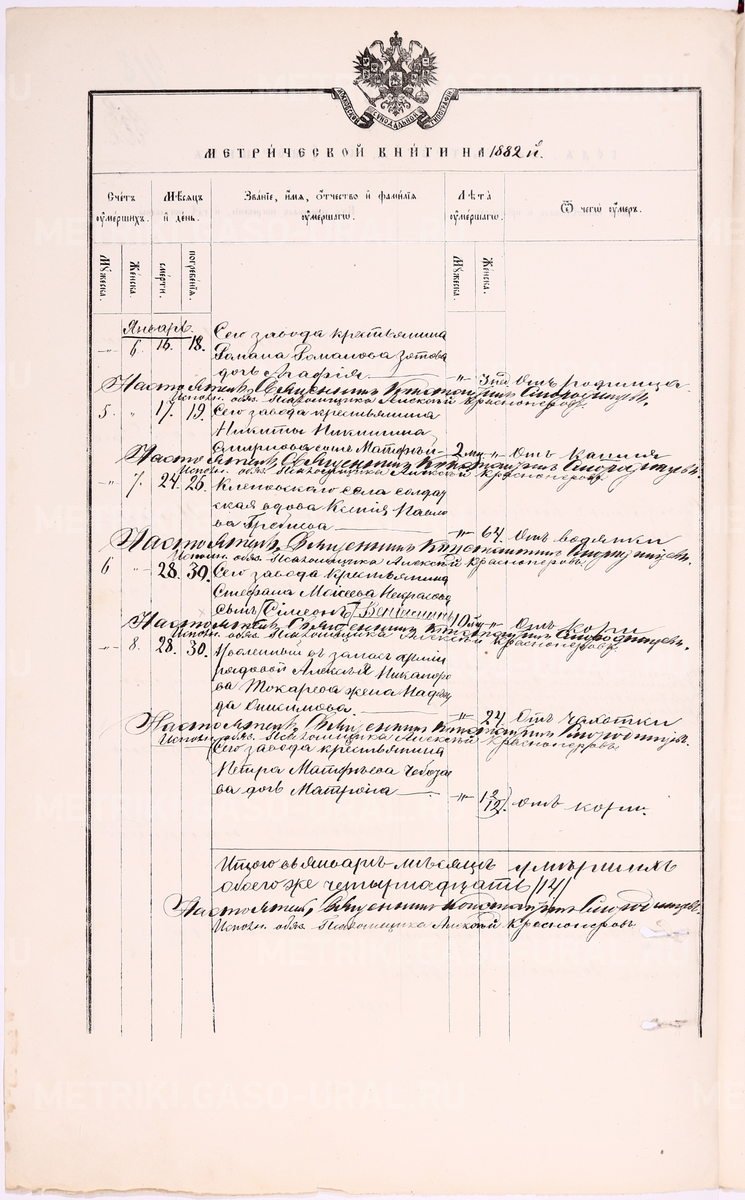 МЕТРИЧЕСКОЙ КНИГИ НА 1882 й.
Счетъ умершихъ. Мѣсяцъ и день. Званіе, имя, отчество и фамилія умершаго. Лѣта умершаго. Ѿ чегѡ умеръ.
Мужеска. Женска. смерти. погребенія. Мужеска. Женска.
Январь.
„ 6. 16. 18. Сего завода крестьянина
Романа Романова Зотова
дочь Агафія. „ 3 нед Отъ родимца.
Настоятель, Священникъ Константинъ
Исполн. обяз. Псаломщика Алексѣй Красноперовъ.
5 „ 17. 19. Сего завода крестьянина
Никиты Никитина
Смирнова сынъ Матфѣй 2 „ Отъ кашля
Настоятель, Священникъ Константинъ
Исполн. обяз. Псаломщика Алексѣй Красноперовъ
„ 7. 24. 26. Кленовского села солдат
ская вдова Ксенія Павло
ва „ 64. Отъ водянки
Настоятель, Священникъ Константинъ
Исполн. обяз. Псаломщика Алексѣй Красноперовъ
6 „ 28. 30. Сего завода крестьянина
Стефана Моисеева Некрасова
сынъ Симеонъ 10 „ Отъ кори
Настоятель, Священникъ Константинъ
Исполн. обяз. Псаломщика Алексѣй Красноперовъ
„ 8. 28. 30. Уволенный въ запасъ арміи
рядовой Алексѣя Никаноро
ва Токарева жена Надеж
да Онисимова „ 24 Отъ чахотки
Настоятель, Священникъ Константинъ
Исполн. обяз. Псаломщика Алексѣй Красноперовъ
Сего завода крестьянина
Петра Матфѣева
ва дочь Матрона „ отъ кори.
Итого въ январѣ мѣсяцѣ умершихъ
обоего же четырнадцать /14/
Настоятель, Священникъ Константинъ
Исполн. обяз. Псаломщика Алексѣй Красноперовъ
METRIKI.GASO-URAL.RU